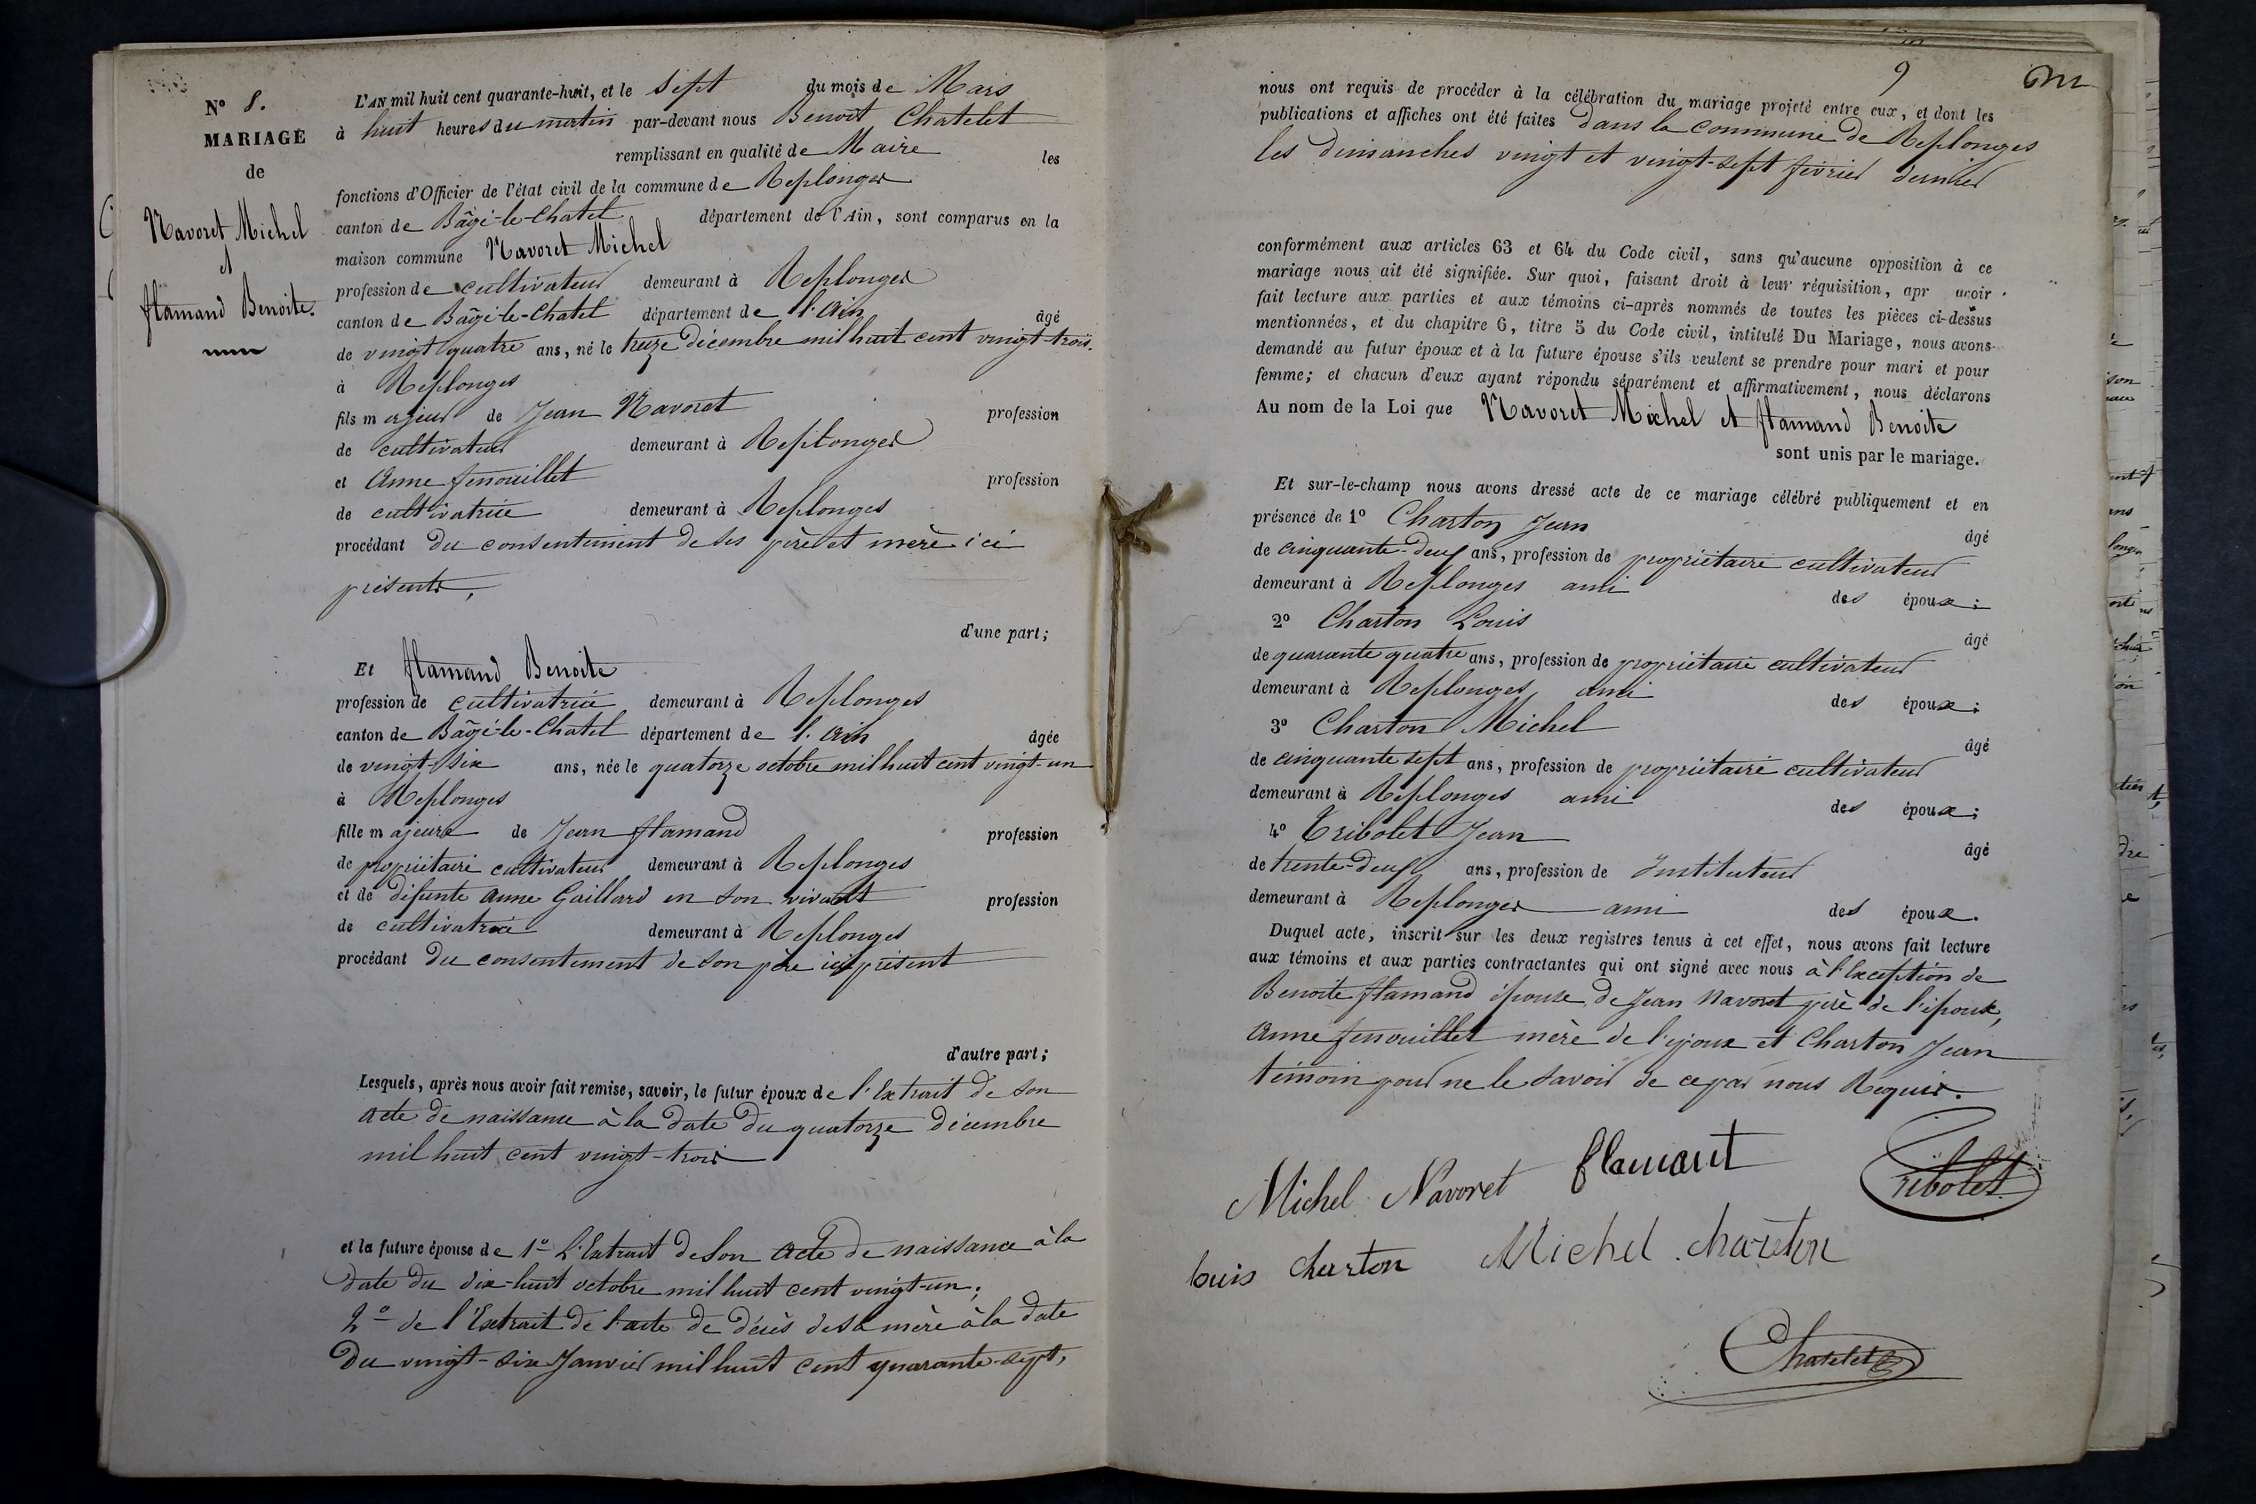 N° 8.
MARIAGE
de
Navoret Michel
et
flamand Benoite.
L'AN mil huit cent quarante-huit, et le sept du mois de Mars
à huit heures du matin par-devant nous Benoit Chatelet
remplissant en qualité de Maire les
fonctions d'Officier de l'état civil de la commune de Replonges
canton de Bâgé-le-Chatel département de l'Ain, sont comparus en la
maison commune Navoret Michel
profession de cultivateur demeurant à Replonges
canton de Bâgé-le-Chatel département de l'ain âgé
de vingt quatre ans, né le treize décembre mil huit cent vingt-trois.
à Replonges
fils majeur de Jean Navoret profession
de cultivateur demeurant à Replonges
et Anne fenouillet profession
de cultivatrice demeurant à Replonges
procédant du consentement de ses père et mère ici
présents,
d'une part;
Et flamand Benoite
profession de cultivatrice demeurant à Replonges
canton de Bâgé-le-Chatel département de l'ain âgée
de vingt-six ans, née le quatorze octobre mil huit cent vingt-un
à Replonges
fille majeure de Jean flamand profession
de propriétaire cultivateur demeurant à Replonges
et de défunte Anne Gaillard en son vivant profession
de cultivatrice demeurant à Replonges
procédant du consentement de son père ici présent
d'autre part;
Lesquels, après nous avoir fait remise, savoir, le futur époux de l'Extrait de son
acte de naissance à la date du quatorze décembre
mil huit cent vingt-trois
et la future épouse de 1° L'Extrait de son acte de naissance à la
date du dix-huit octobre mil huit cent vingt-un;
2° de l'Extrait de l'acte de décès de sa mère à la date
du vingt-six Janvier mil huit cent quarante-sept,
9
nous ont requis de procéder à la célébration du mariage projeté entre eux, et dont les
publications et affiches ont été faites dans la commune de Replonges
les dimanches vingt et vingt-sept février dernier
conformément aux articles 63 et 64 du Code civil, sans qu'aucune opposition à ce
mariage nous ait été signifiée. Sur quoi, faisant droit à leur réquisition, apr avoir
fait lecture aux parties et aux témoins ci-après nommés de toutes les pièces ci-dessus
mentionnées, et du chapitre 6, titre 5 du Code civil, intitulé Du Mariage, nous avons
demandé au futur époux et à la future épouse s'ils veulent se prendre pour mari et pour
femme; et chacun d'eux ayant répondu séparément et affirmativement, nous déclarons
Au nom de la Loi que Navoret Michel et flamand Benoite
sont unis par le mariage.
Et sur-le-champ nous avons dressé acte de ce mariage célébré publiquement et en
présence de 1° Charton Jean âgé
de cinquante-deux ans, profession de propriétaire cultivateur
demeurant à Replonges ami des époux;
2° Charton Louis âgé
de quarante quatre ans, profession de propriétaire cultivateur
demeurant à Replonges ami des époux;
3° Charton Michel âgé
de cinquante sept ans, profession de propriétaire cultivateur
demeurant à Replonges ami des époux;
4° Tribolet Jean âgé
de trente-deux ans, profession de Instituteur
demeurant à Replonges ami des époux.
Duquel acte, inscrit sur les deux registres tenus à cet effet, nous avons fait lecture
aux témoins et aux parties contractantes qui ont signé avec nous à l'Exception de
Benoite flamand épouse de Jean Navoret père de l'époux,
Anne fenouillet mère de l'époux et Charton Jean
témoin pour ne le savoir de ce par nous Requis.
Michel Navoret flamant Tribolet
Louis charton Michel charton
Chatelet